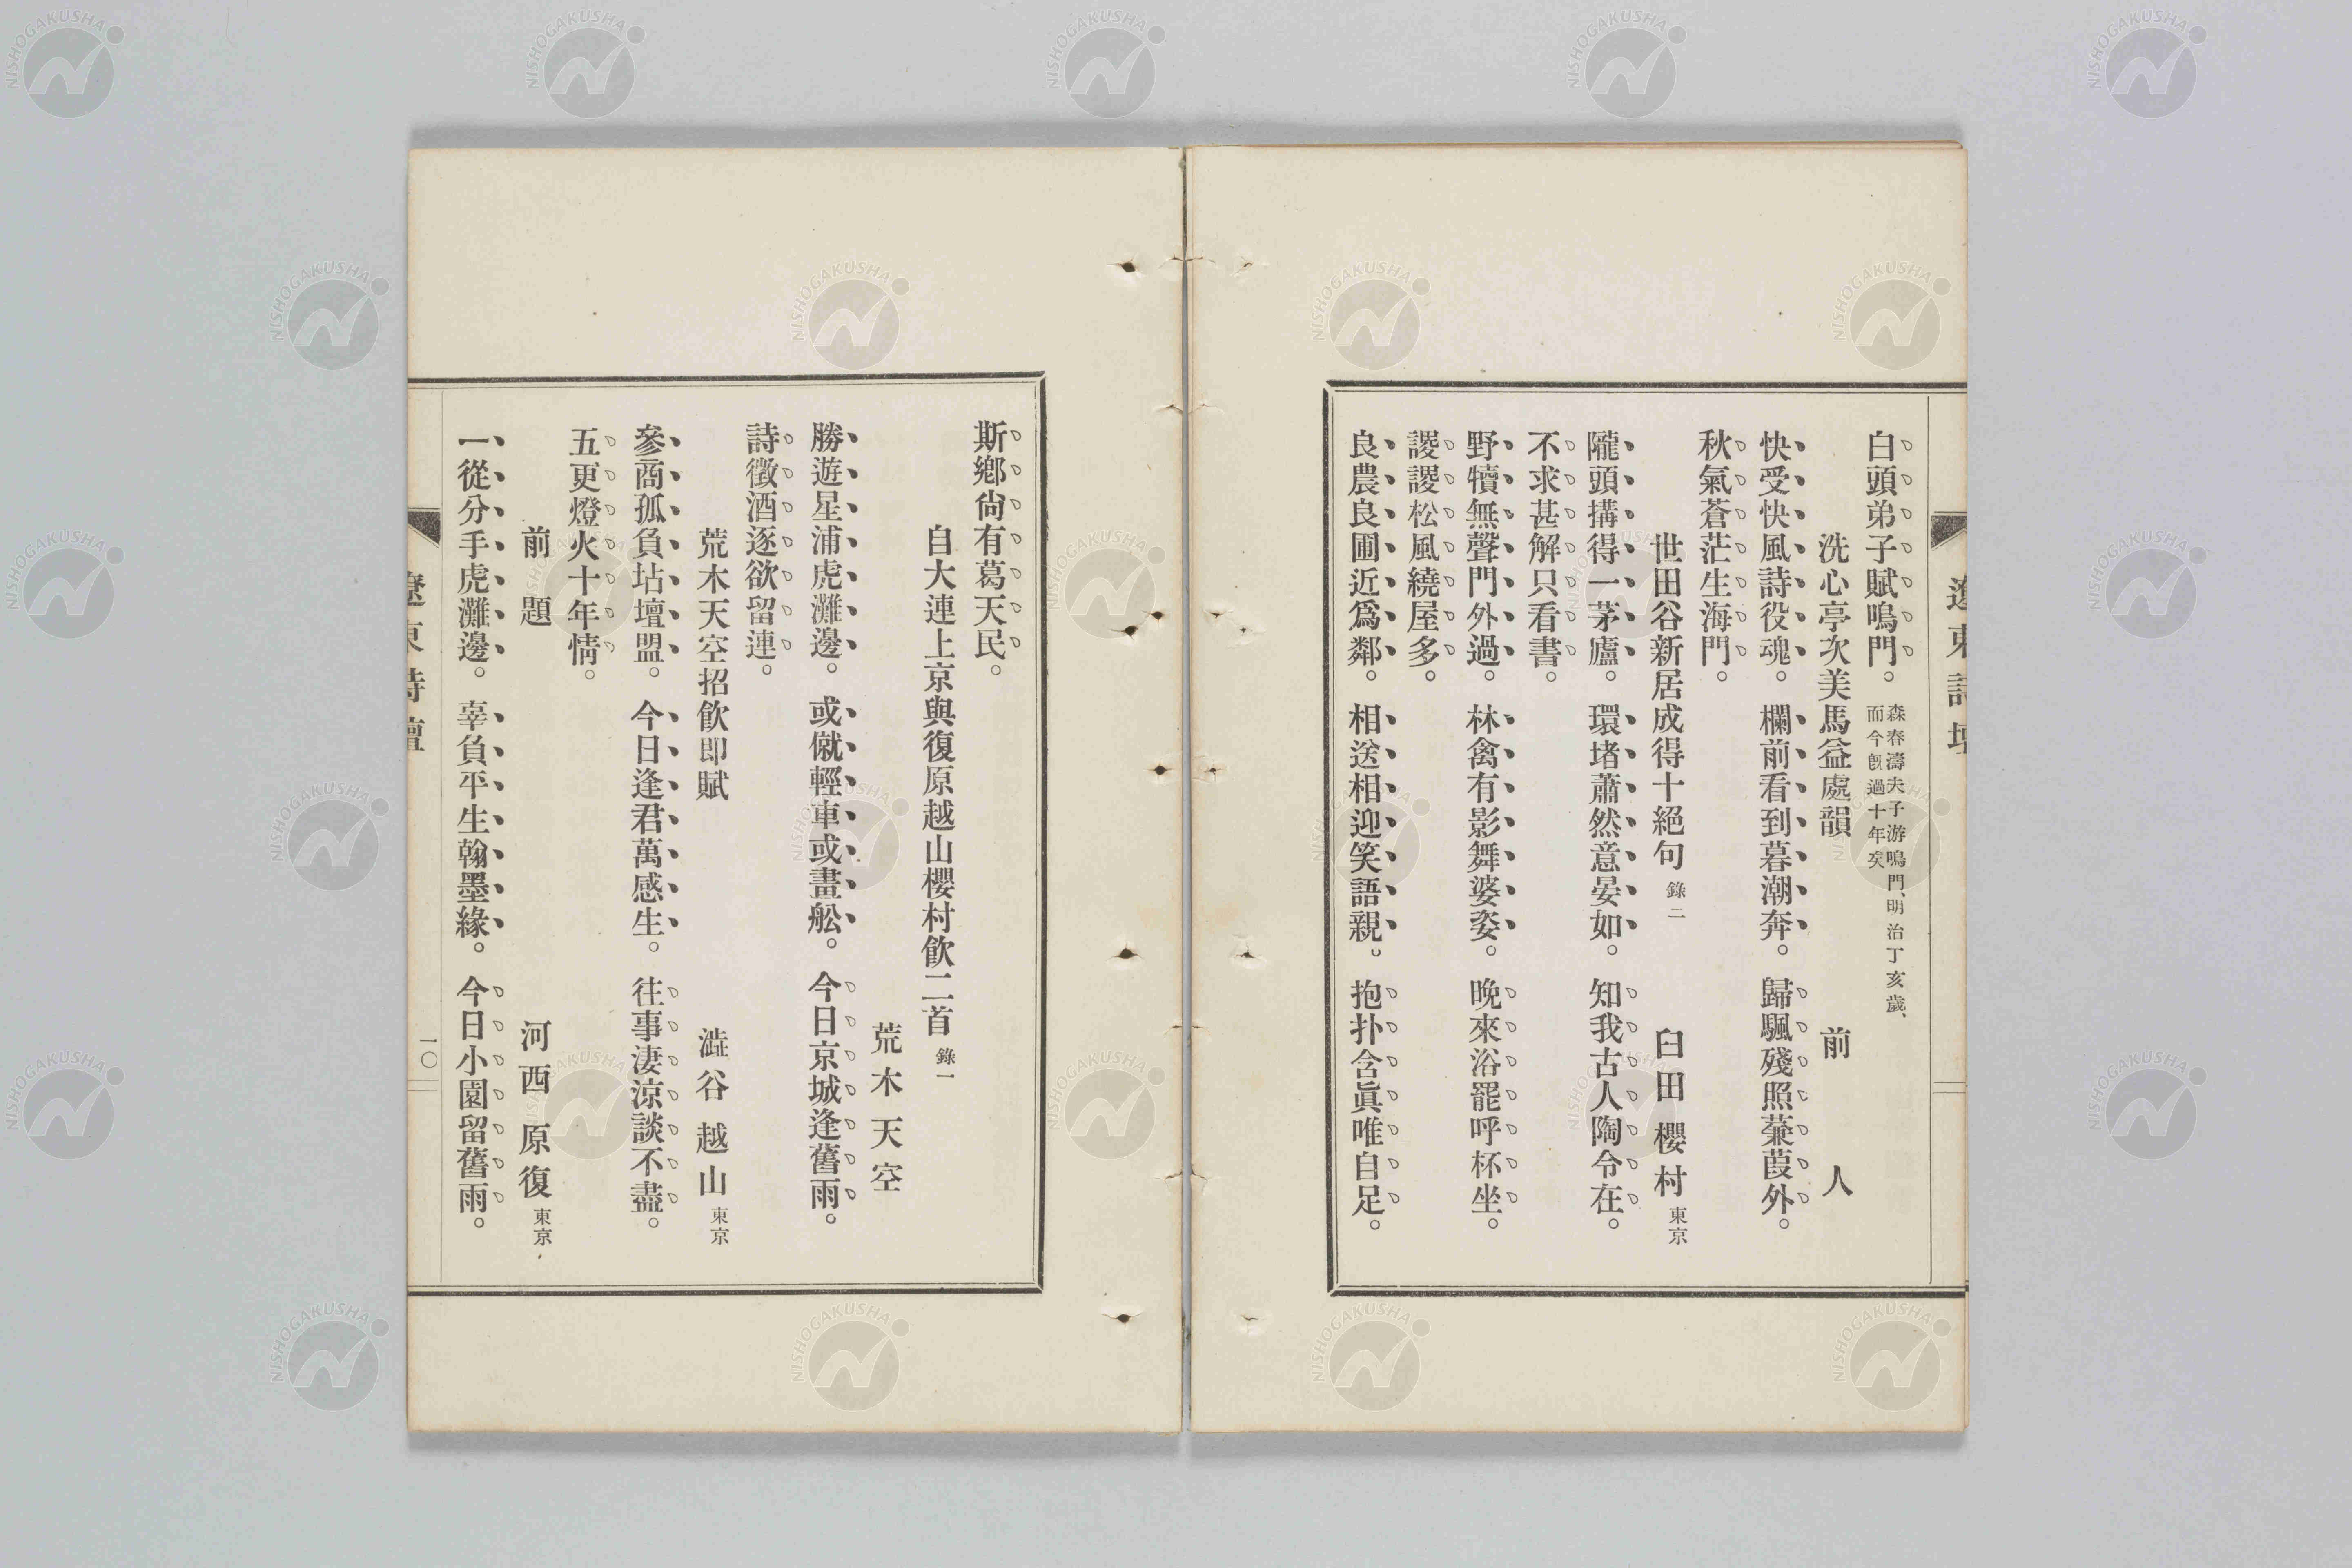 遼東詩壇
白頭弟子賦鳴門。森春濤夫子游鳴門、明治丁亥歲、
而今旣過十年矣
洗心亭次美馬益處韻　前人
快受快風詩役魂。欄前看到暮潮奔。歸颿殘照蒹葭外。
秋氣蒼茫生海門。
世田谷新居成得十絕句 錄二　臼田櫻村 東京
隴頭搆得一茅廬。環堵蕭然意晏如。知我古人陶令在。
不求甚解只看書。
野犢無聲門外過。林禽有影舞婆娑。晚來浴罷呼杯坐。
謖謖松風繞屋多。
良農良圃近爲鄰。相送相迎笑語親。抱扑含眞唯自足。
斯鄉尙有葛天民。
自大連上京與復原越山櫻村飮二首 錄一
荒木天空
勝遊星浦虎灘邊。或僦輕車或畫舩。今日京城逢舊雨。
詩徵酒逐欲留連。
荒木天空招飮卽賦　澁谷越山 東京
參商孤負坫壇盟。今日逢君萬感生。往事凄涼談不盡。
五更燈火十年情。
前題　河西原復 東京
一從分手虎灘邊。辜負平生翰墨緣。今日小園留舊雨。
遼東詩壇
一〇
NISHOGAKUSHA